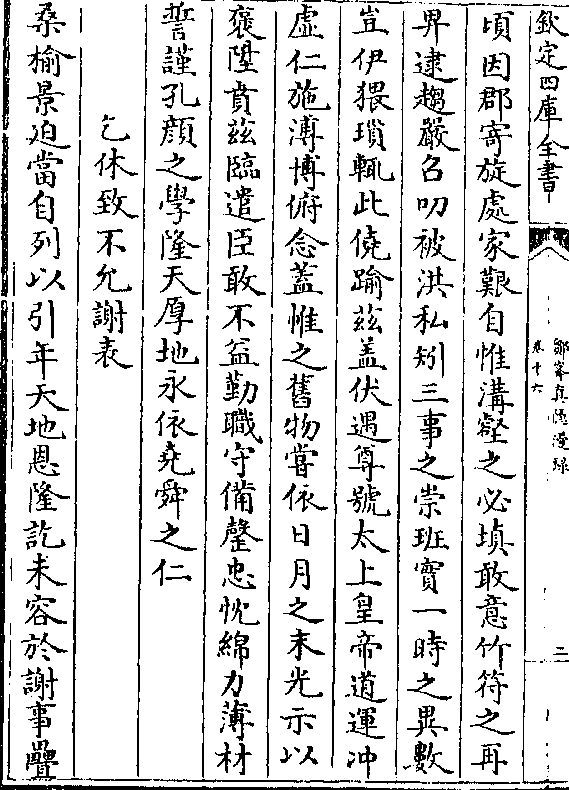 欽定四庫全書
鄮峯真隠漫録
卷十六
三
頃因郡寄旋處家艱自惟溝壑之必填敢意竹符之再
畀逮趨嚴召叨被洪私矧三事之崇班實一時之異數
豈伊猥瑣輒此僥踰茲盖伏遇尊號太上皇帝道運冲
虛仁施溥博俯念蓋惟之舊物嘗依日月之末光示以
褒陞賁茲臨遣臣敢不益勤職守備罄忠忱綿力薄材
誓謹孔顔之學隆天厚地永依堯舜之仁
乞休致不允謝表
桑榆景迫當自列以引年天地恩隆訖未容於謝事疊